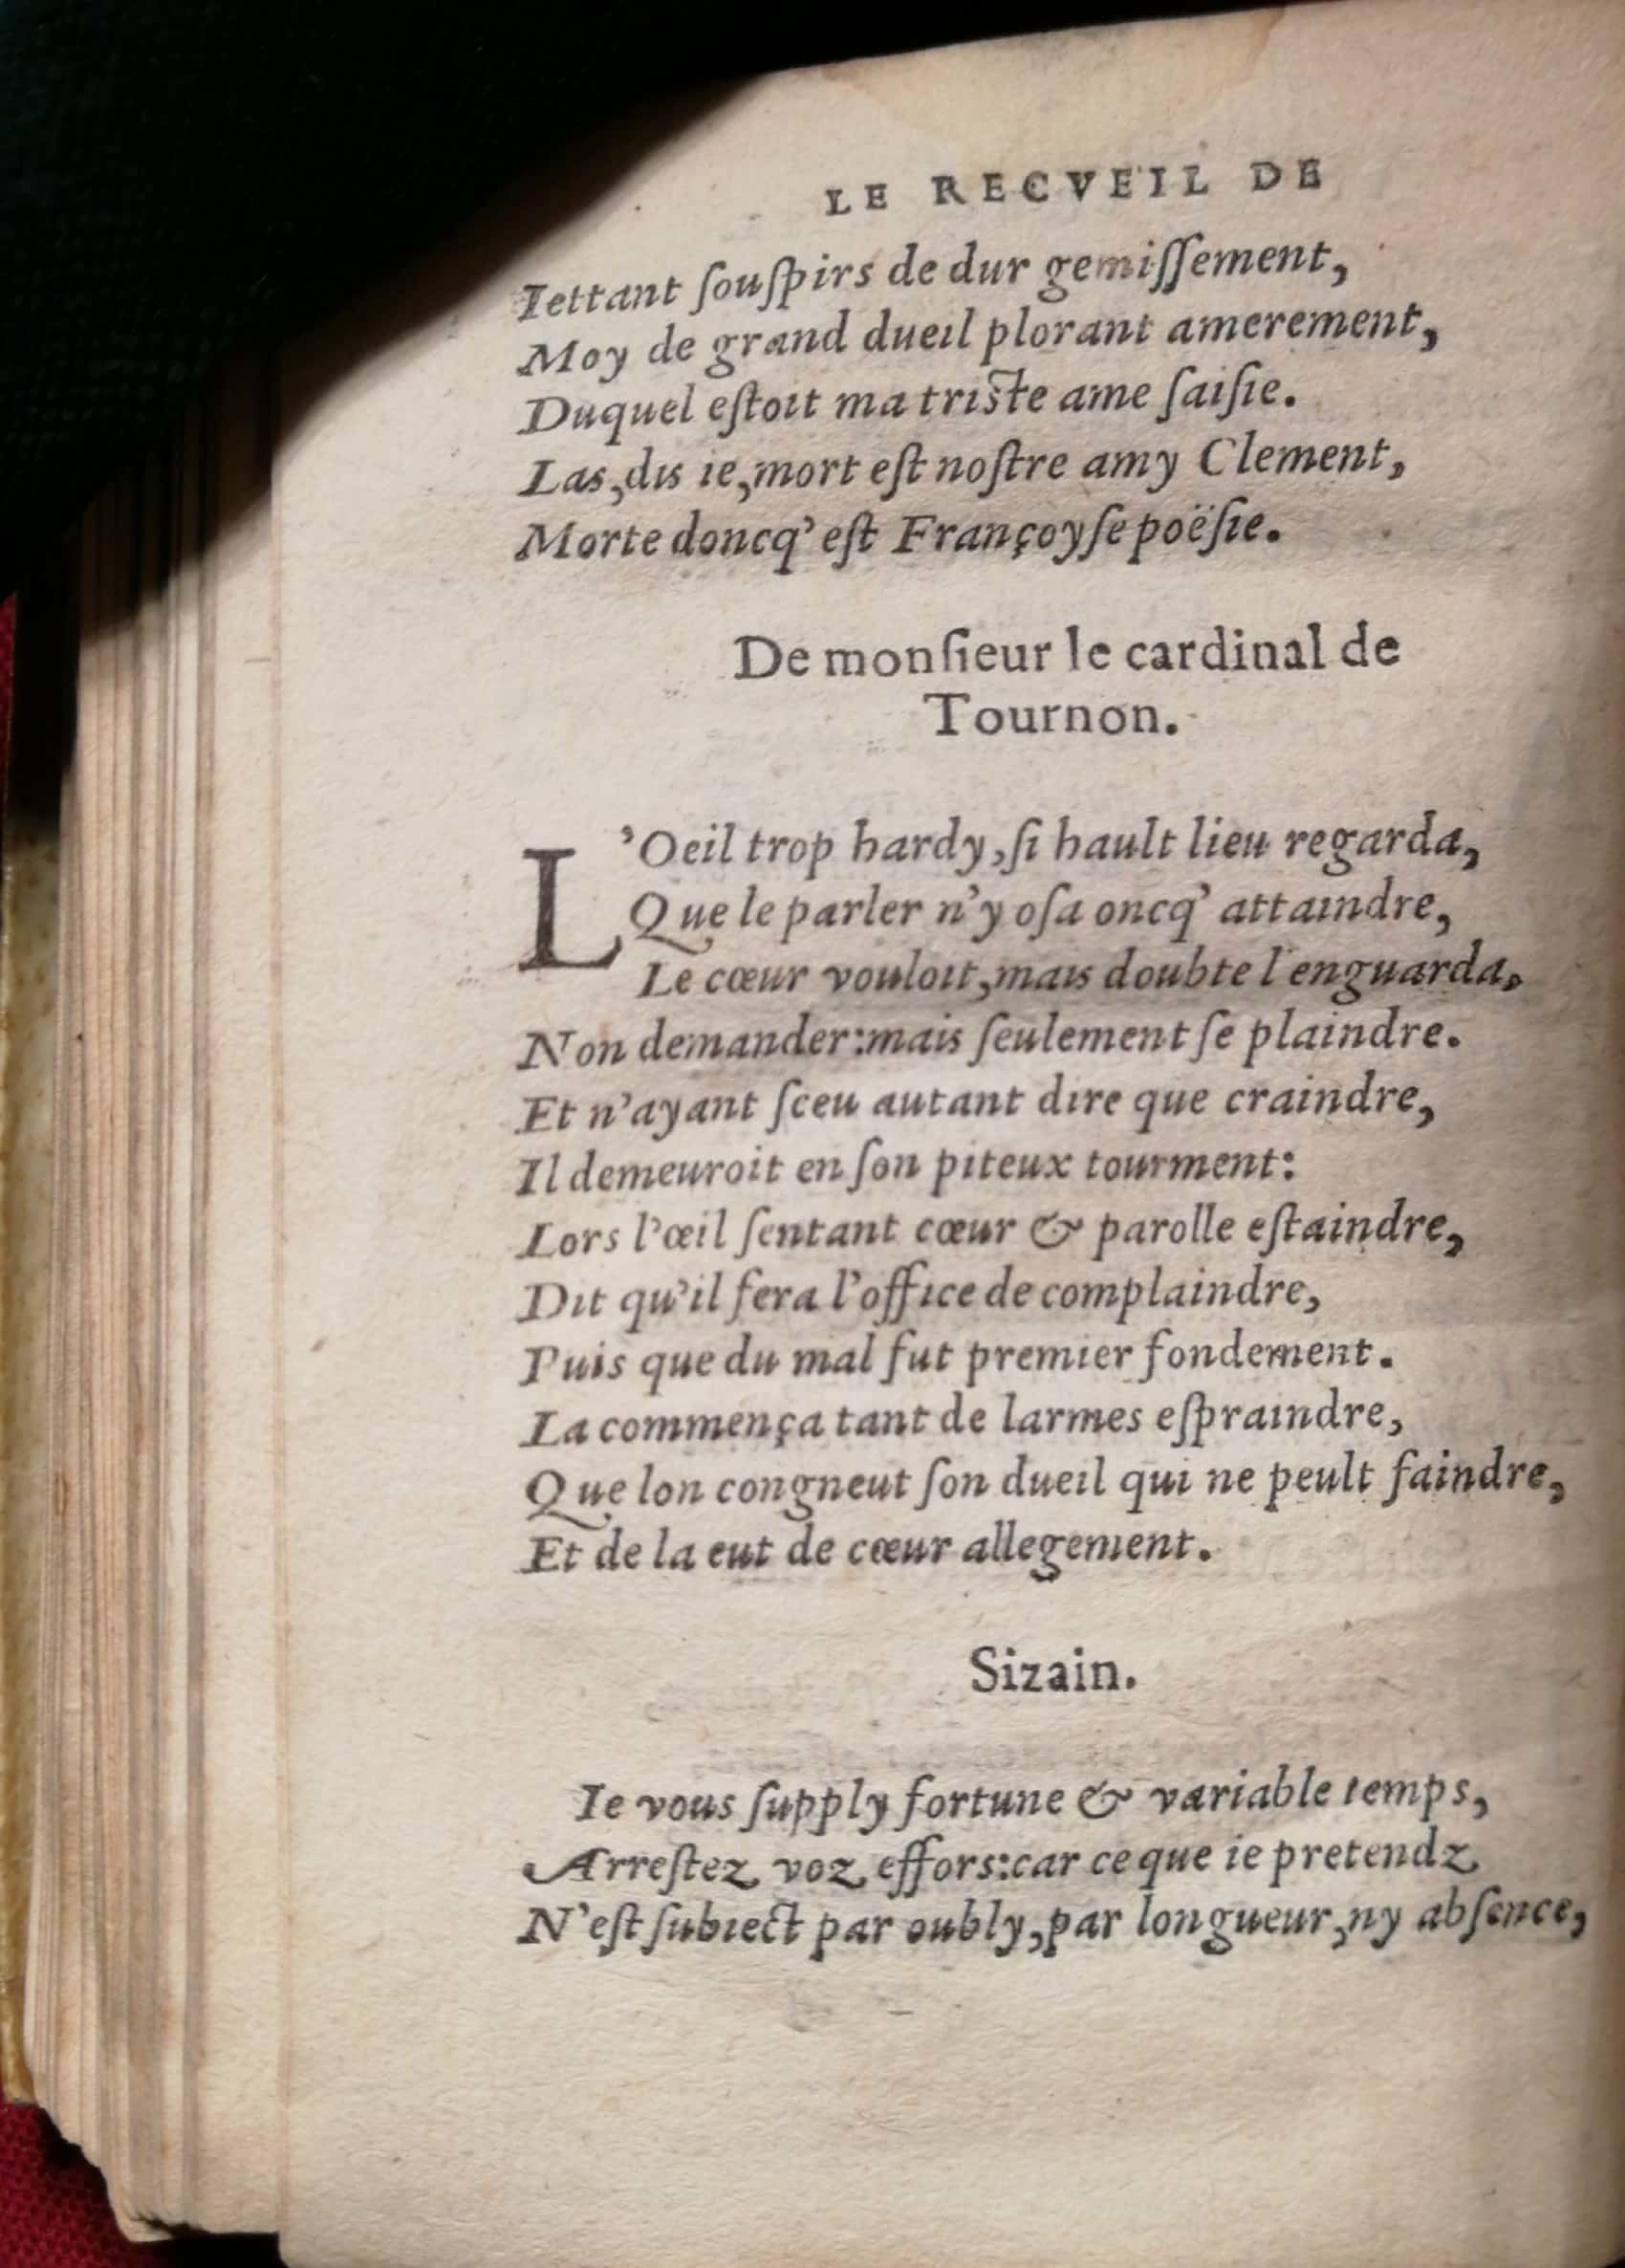 LE RECVEIL DE
Iettant ſouſpirs de dur gemiſſement,
Moy de grand dueil plorant amerement,
Duquel eſtoit ma triſte ame ſaiſie.
Las, dis ie, mort eſt noſtre amy Clement,
Morte doncq' eſt Françoyſe poëſie.
De monſieur le cardinal de
Tournon.
L'Oeil trop hardy, ſi hault lieu regarda,
Que le parler n'y oſa oncq' attaindre,
Le cœur vouloit, mais doubte l'enguarda,
Non demander: mais ſeulement ſe plaindre.
Et n'ayant ſceu autant dire que craindre,
Il demeuroit en ſon piteux tourment:
Lors l'œil ſentant cœur & parolle eſtaindre,
Dit qu'il fera l'office de complaindre,
Puis que du mal fut premier fondement.
La commença tant de larmes eſpraindre,
Que lon congneut ſon dueil qui ne peult faindre,
Et de la eut de cœur allegement.
Sizain.
Ie vous ſupply fortune & variable temps,
Arreſtez voz effors: car ce que ie pretendz
N'eſt ſubiect par oubly, par longueur, ny abſence,